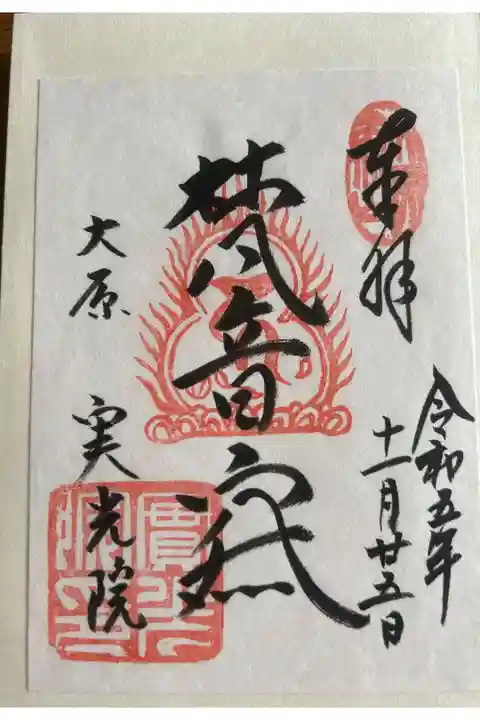 奉拝
令和五年
十一月廿五日
梵音
大原 実光院
實光
院印